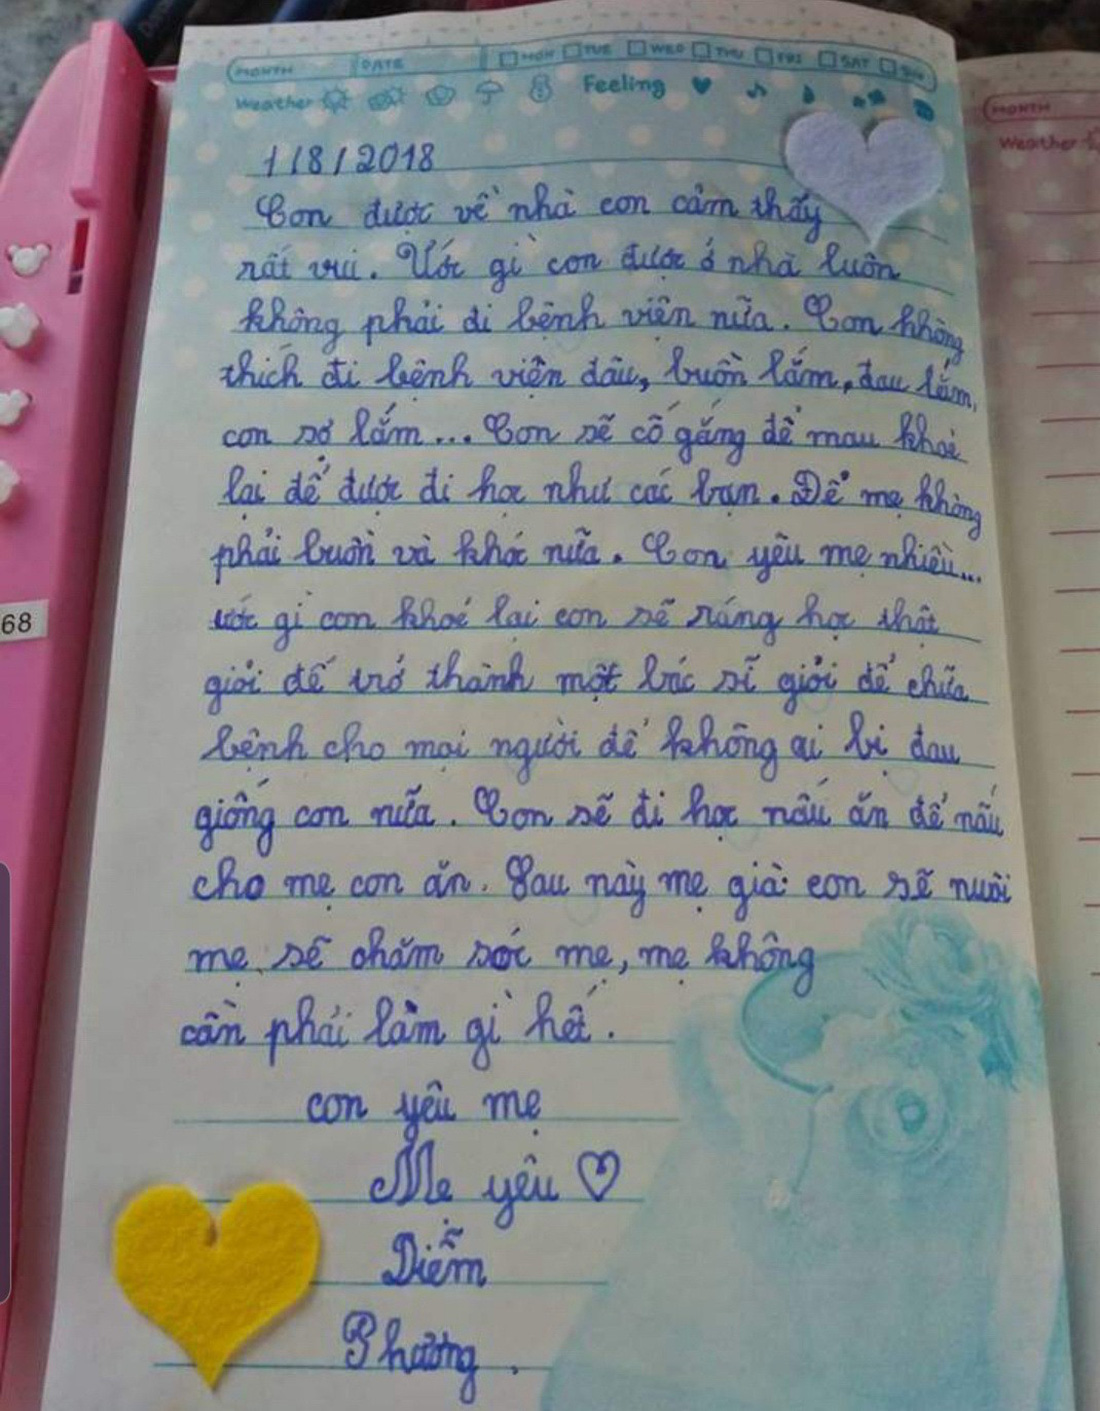 MONTH DATE MON TUE WED THU FRI SAT SUN
Weather Feeling
MONTH
Weather
1/8/2018
Con được về nhà con cảm thấy
rất vui. Ước gì con được ở nhà luôn
không phải đi bệnh viện nữa. Con không
thích đi bệnh viện đâu, buồn lắm, đau lắm,
con sợ lắm... Con sẽ cố gắng để mau khoẻ
lại để được đi học như các bạn. Để mẹ không
phải buồn và khóc nữa. Con yêu mẹ nhiều...
ước gì con khoẻ lại con sẽ ráng học thật
giỏi để trở thành một bác sĩ giỏi để chữa
bệnh cho mọi người để không ai bị đau
giống con nữa. Con sẽ đi học nấu ăn để nấu
cho mẹ con ăn. Sau này mẹ già con sẽ nuôi
mẹ, sẽ chăm sóc mẹ, mẹ không
cần phải làm gì hết.
con yêu mẹ
Mẹ yêu ♡
Diễm
Phương.
68